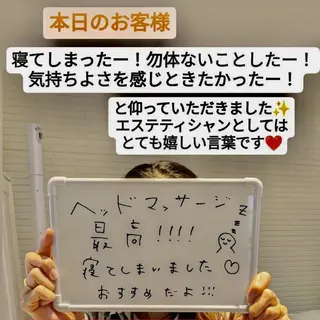 本日のお客様
寝てしまったー！勿体ないことしたー！
気持ちよさを感じときたかったー！
と仰っていただきました✨
エステティシャンとしては
とても嬉しい言葉です❤️
ヘッドマッサージ
最高!!!!
寝てしまいました♡
おすすめだよ!!!